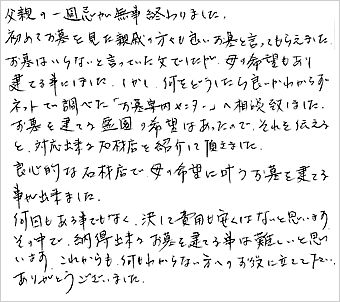 父親の一週忌が無事終わりました。
初めてお墓を見た親戚の方々も良いお墓と言ってもらえました。
お墓はいらないと言っていた父でしたが、母の希望もあり
建てる事にしました。しかし、何をどうしたら良いかわからず
ネットで調べた「お墓案内センター」へ相談致しました。
お墓を建てる霊園の希望はあったので、それを伝える
と、対応出来る石材店を紹介して頂きました。
良心的な石材店で母の希望に叶うお墓を建てる
事が出来ました。
何回もある事でもなく、決して費用も安くはないと思います。
その中で、納得出来るお墓を建てる事は難しいと思い
います。これからも、何もわからない方へのお役に立って下さい。
ありがとうございました。